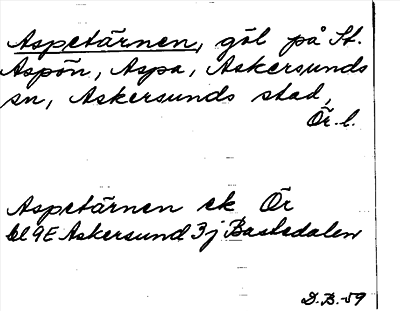 Aspetärnen, göl på St.
Aspön, Aspa, Askersunds
sn, Askersunds stad,
Ör. l.
Aspetärnen ek Ör
bl 9E Askersund 3j Bastedalen
D.B.-59